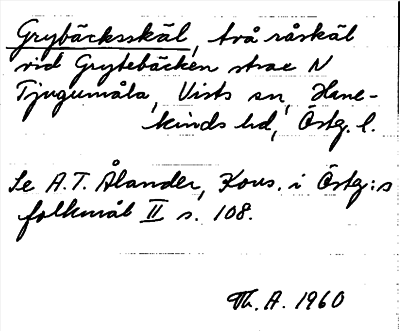 Grybäcksskäl, två råskäl
vid Grytebäcken strax N
Tjugumåla, Vists sn, Hane-
kinds hd, Östg. l.
Se A.T. Ålander, Kons. i Östg:s
folkmål II s. 108.
Th. A. 1960